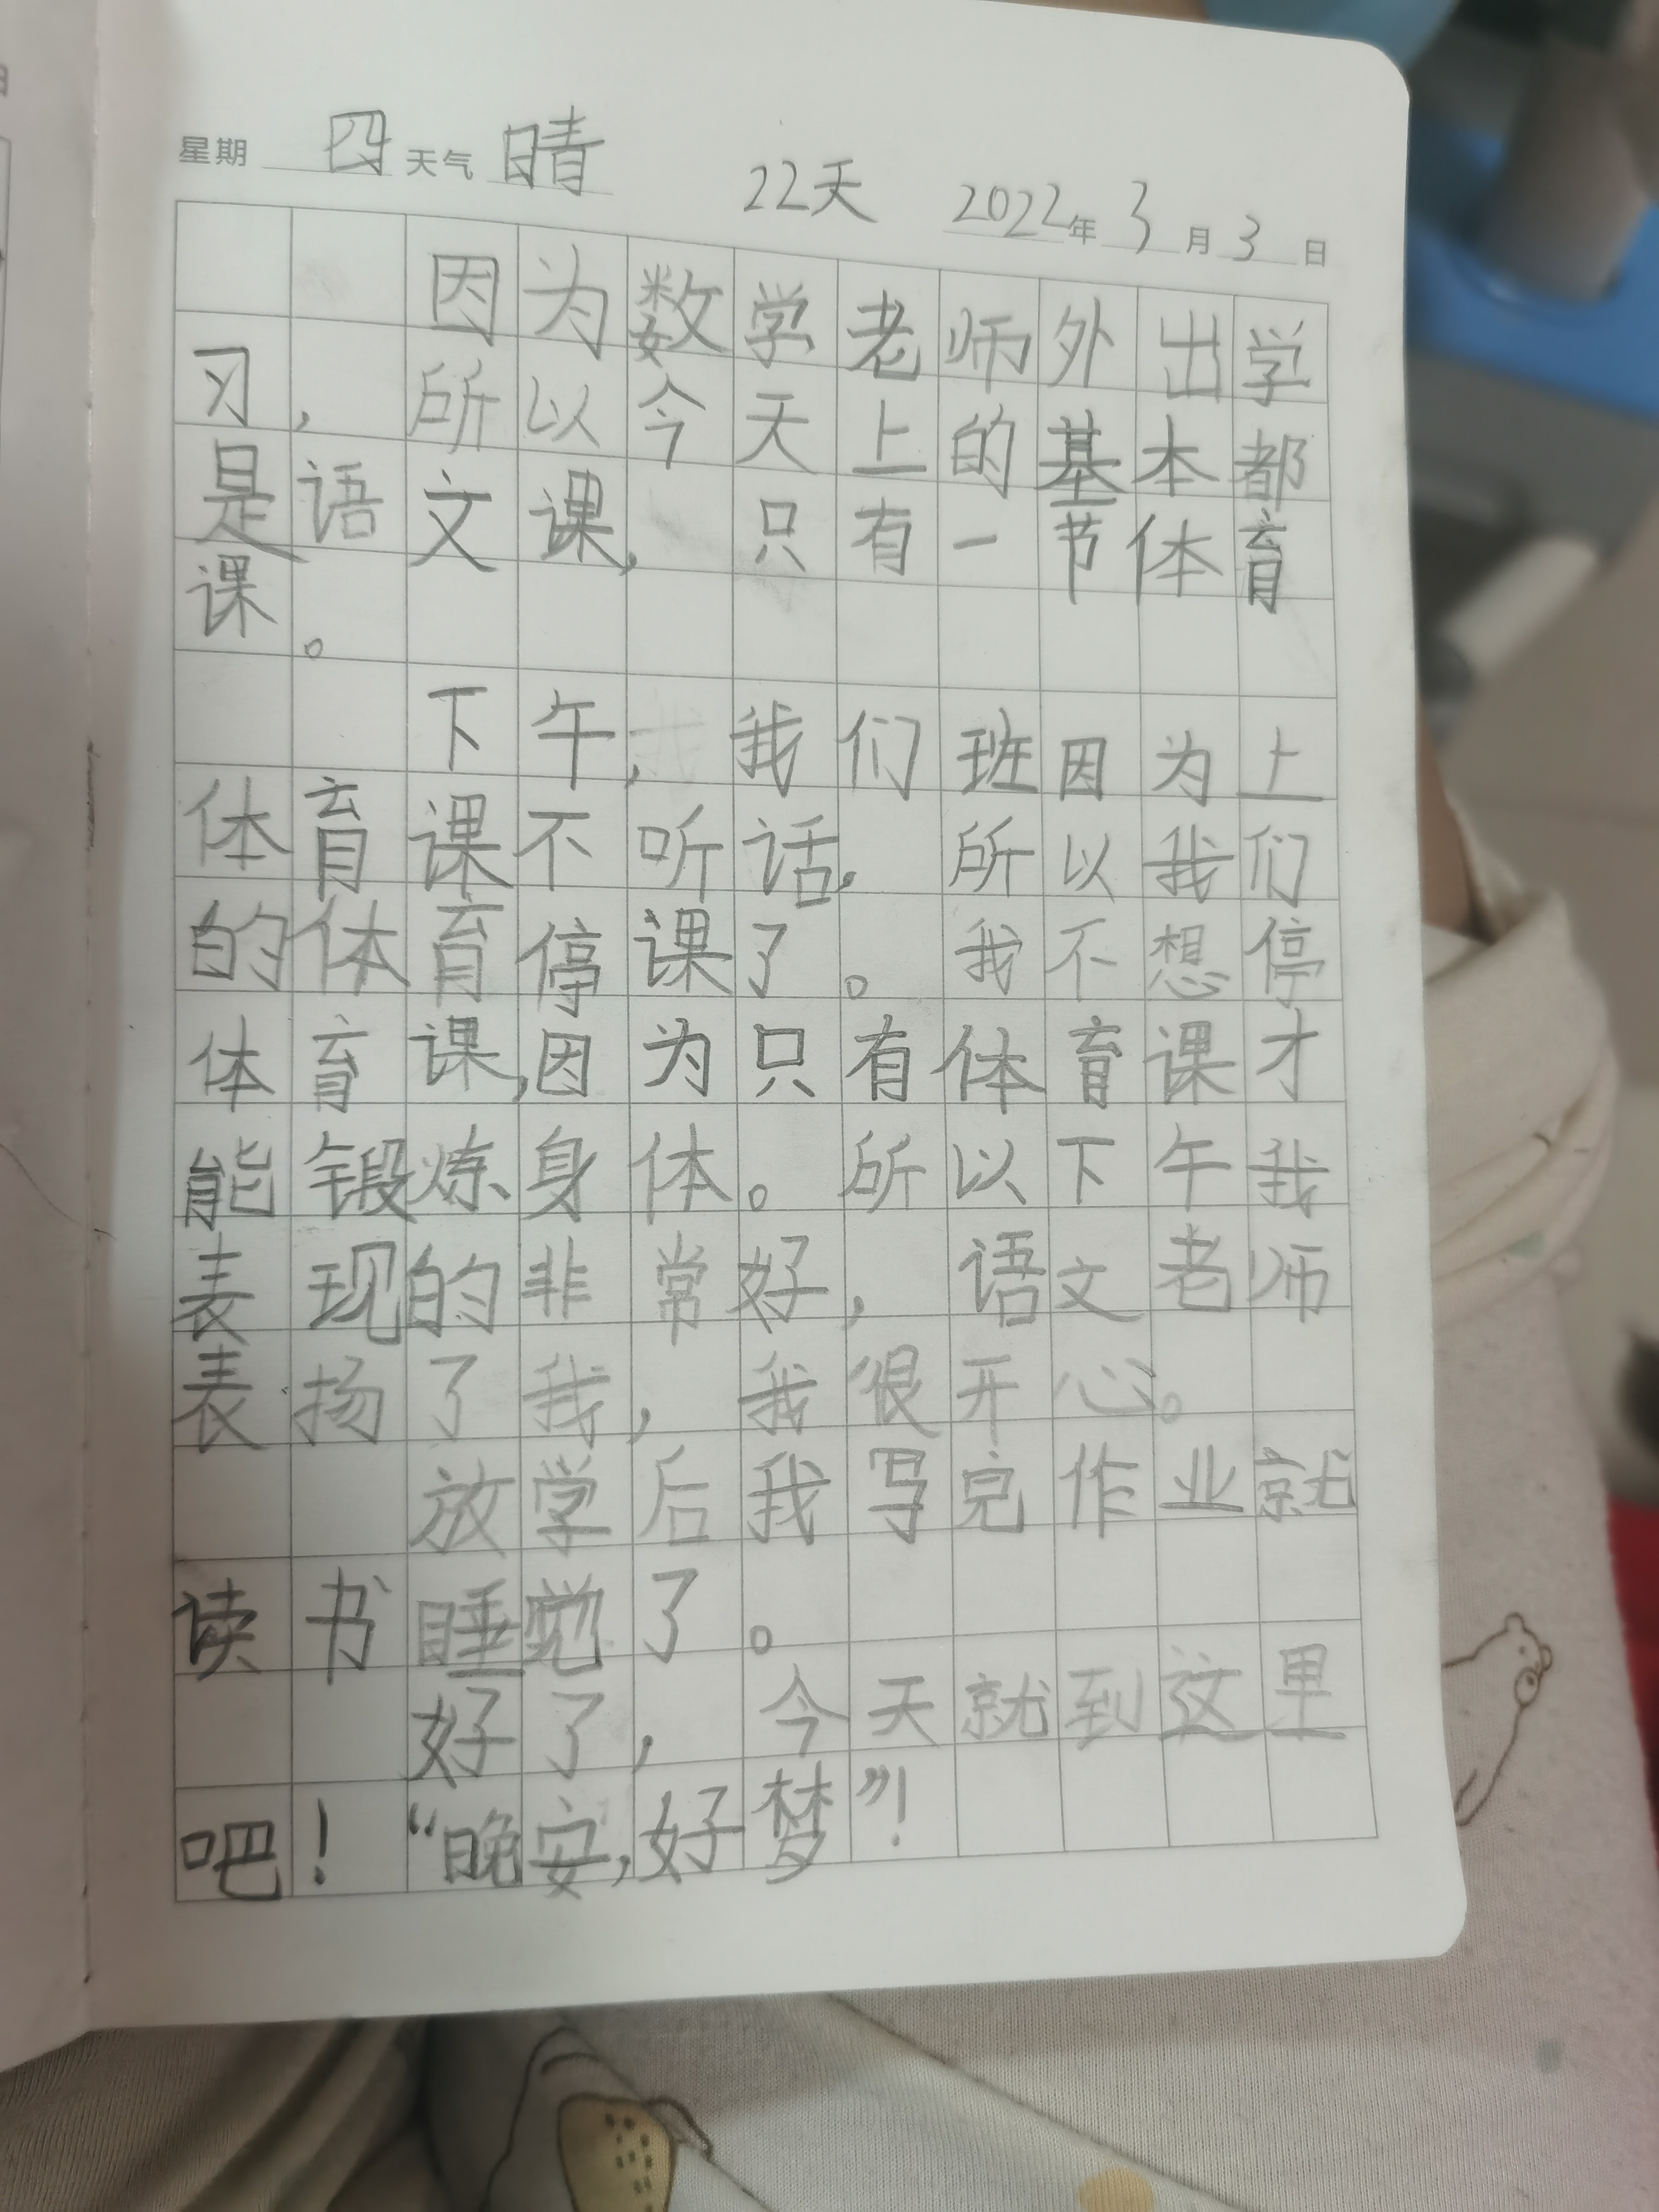 星期 四 天气 晴 22天 2022年 3月 3日
因为数学老师外出学
习，所以今天上的基本都
是语文课，只有一节体育
课。
下午，我们班因为上
体育课不听话，所以我们
的体育停课了。我不想停
体育课，因为只有体育课才
能锻炼身体。所以下午我
表现的非常好，语文老师
表扬了我，我很开心。
放学后我写完作业就
读书睡觉了。
好了，今天就到这里
吧！“晚安，好梦”！